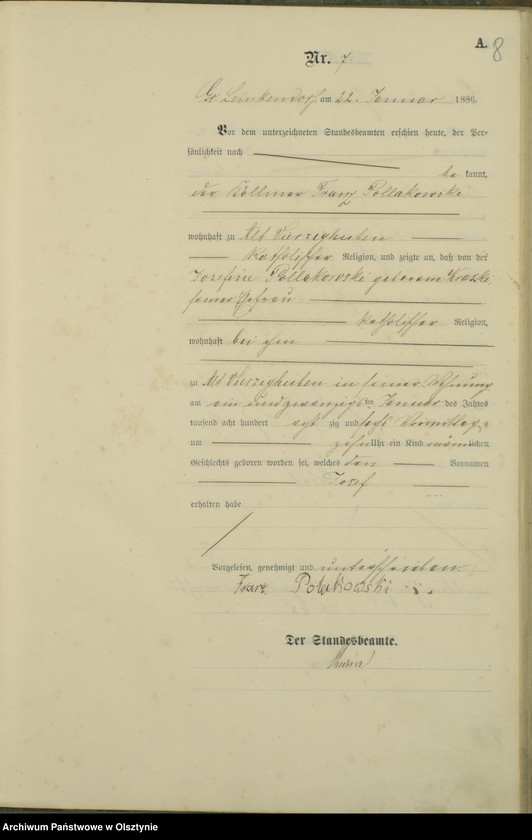 A.
8
Nr. 7
Gr. Lemkendorf am 22. Januar 1886.
Vor dem unterzeichneten Standesbeamten erschien heute, der Per-
sönlichkeit nach
be kannt,
der Köllmer Franz Pollakowski
wohnhaft zu Alt Vierzighuben
katholischer Religion, und zeigte an, daß von der
Josefine Pollakowski geborenen
seiner Ehefrau
katholischer Religion,
wohnhaft bei ihm
zu Alt Vierzighuben in seiner Wohnung
am ein und zwanzigsten Januar des Jahres
tausend acht hundert acht zig und sechs Vormittags
um zehn Uhr ein Kind männlichen
Geschlechts geboren worden sei, welches den Vornamen
Josef
erhalten habe
Vorgelesen, genehmigt und unterschrieben
Franz Polakowski
Der Standesbeamte.
Archiwum Państwowe w Olsztynie